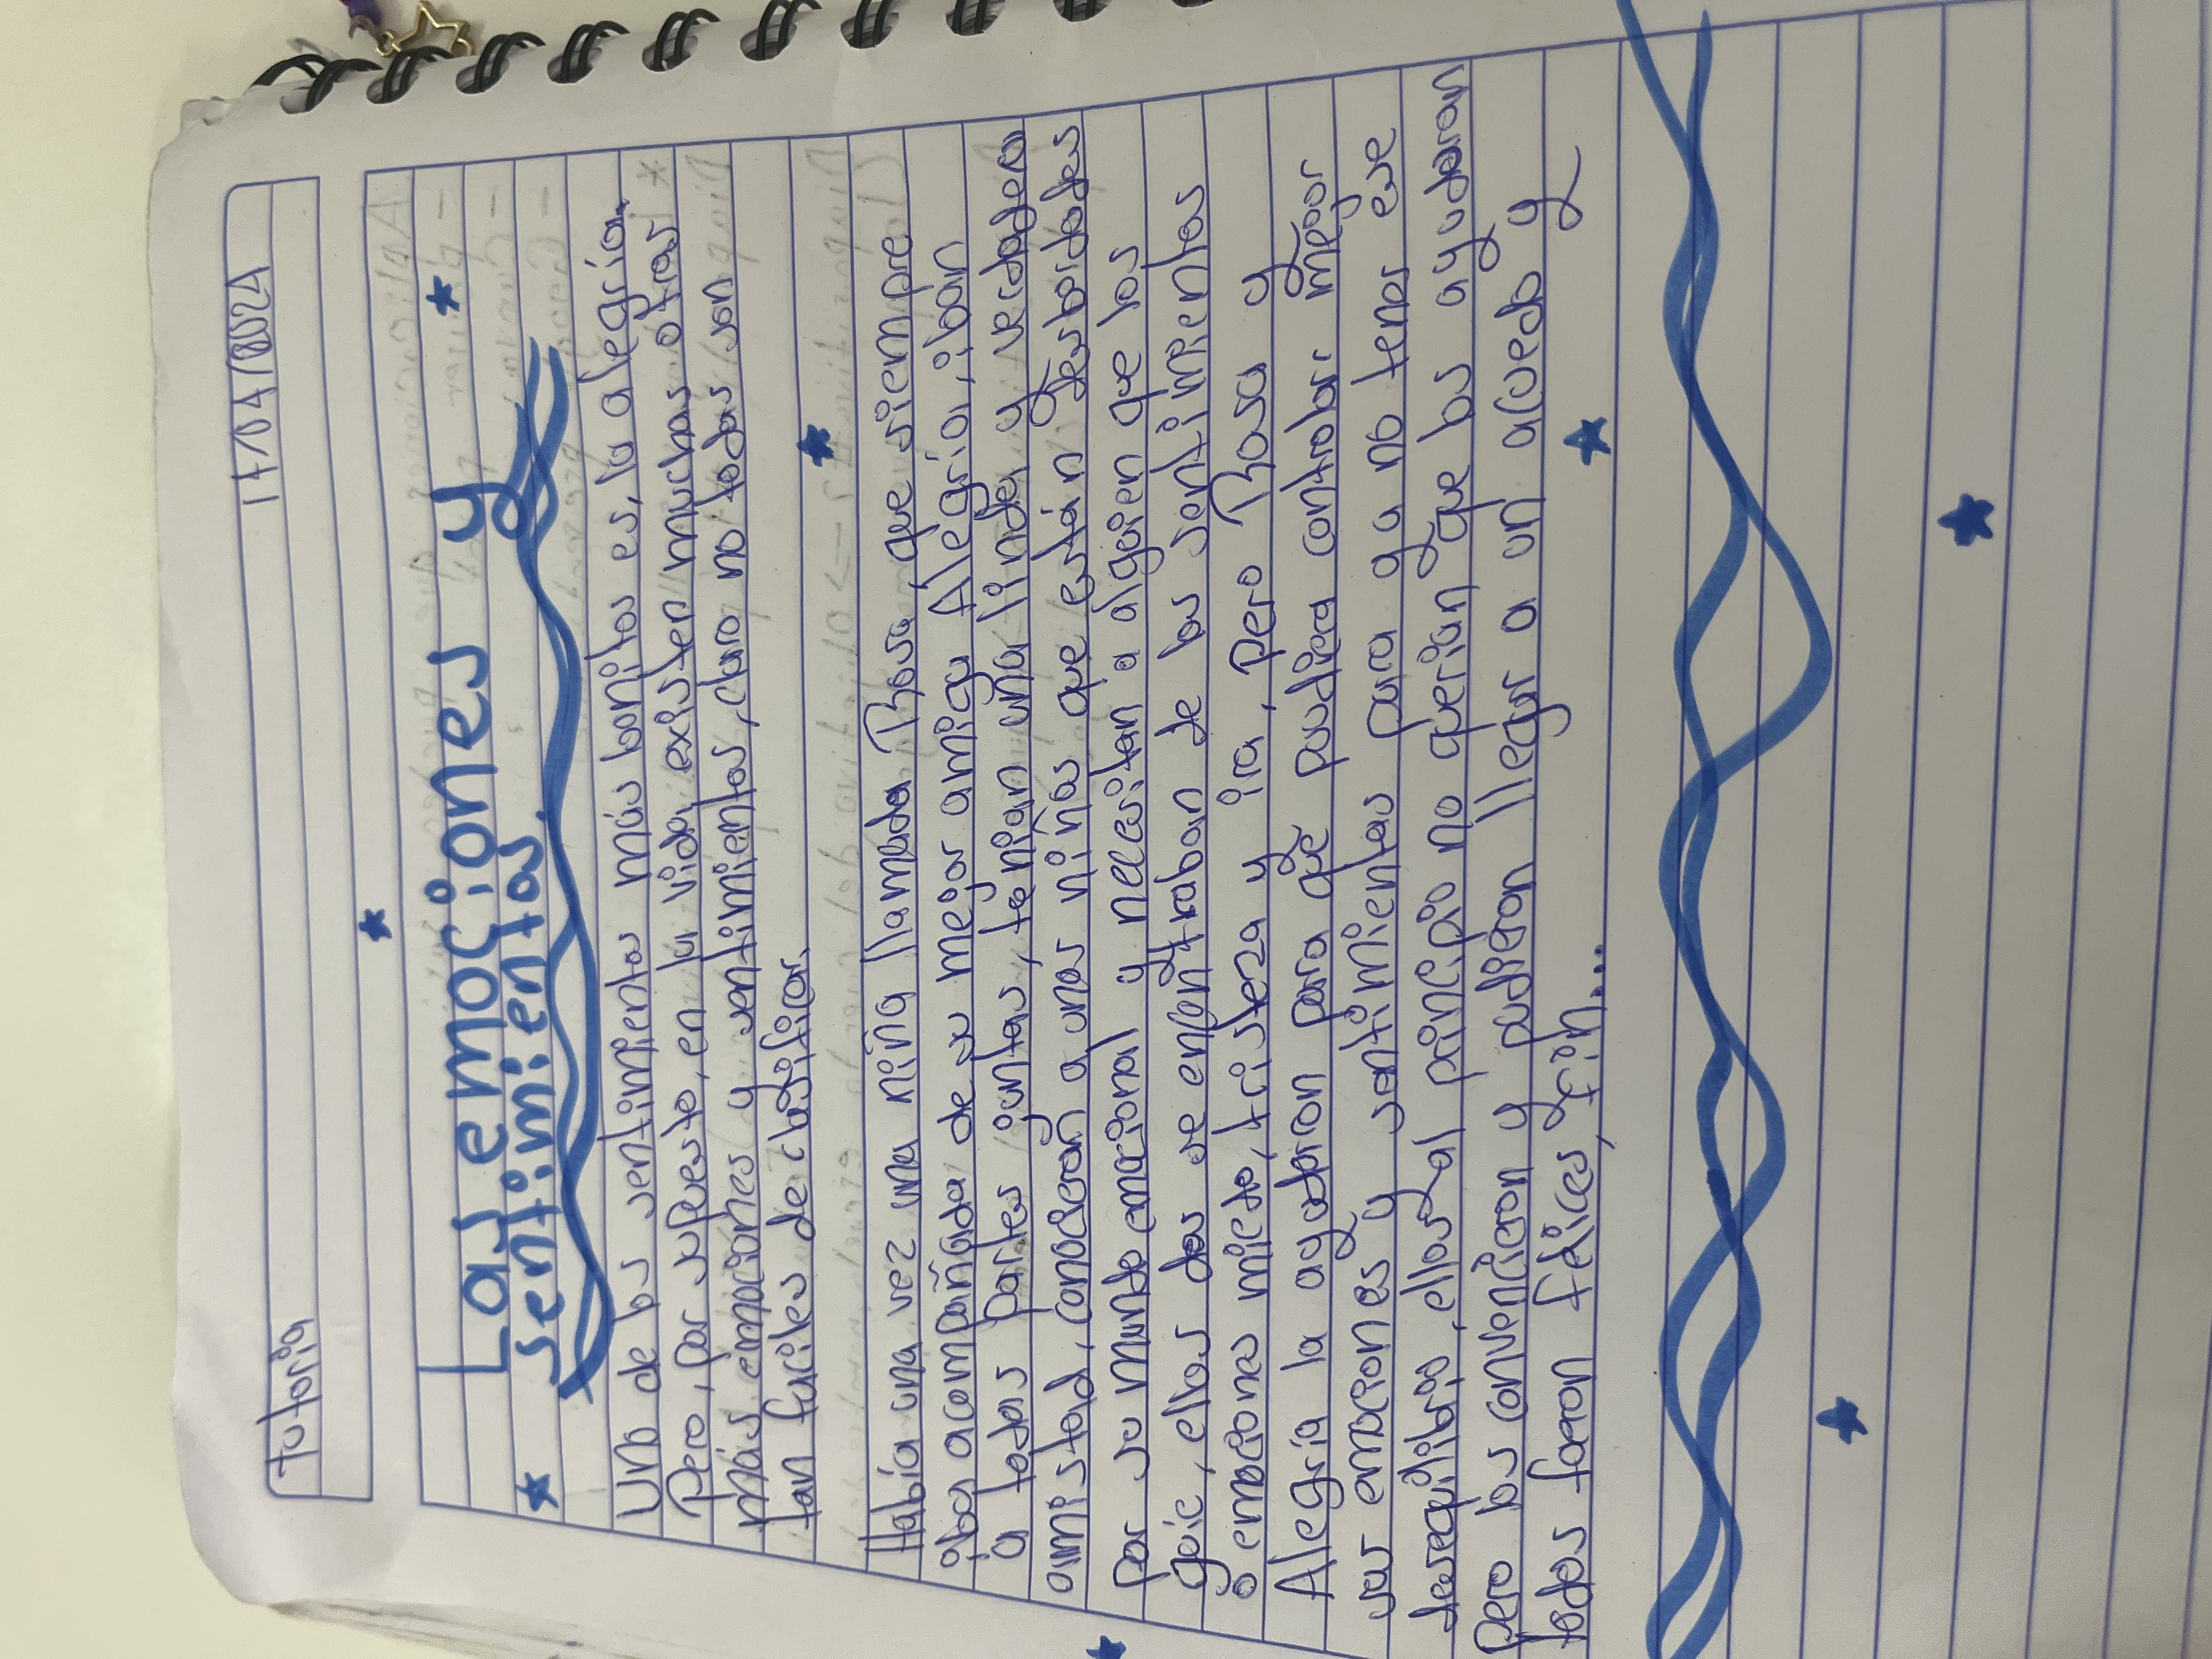 Tutoria
17/04/2024
Las emociones y
sentimientos.
Uno de los sentimientos más bonitos es, la alegría.
Pero, por supuesto, en la vida existen muchas otras
más emociones y sentimientos, claro no todas son
tan faciles de clasificar.
Había una vez una niña llamada Rosa, que siempre
iba acompañada de su mejor amiga Alegría, iban
a todas partes juntas, tenian una linda y verdadera
amistad, conocieron a unas niñas que están desbordades
por su mundo emocional y necesitan a alguien que los
guíe, ellas dos se encontraban de los sentimientos
o emociones miedo, tristeza y ira, pero Rosa y
Alegria la ayudaron para que pudiera controlar mejor
sus emociones y sentimientos para ya no tener ese
desequilibrio, ellos al principio no querian que los ayudaran
pero los convencieron y pudieron llegar a un acuedo y
todos fueron felices, fin...